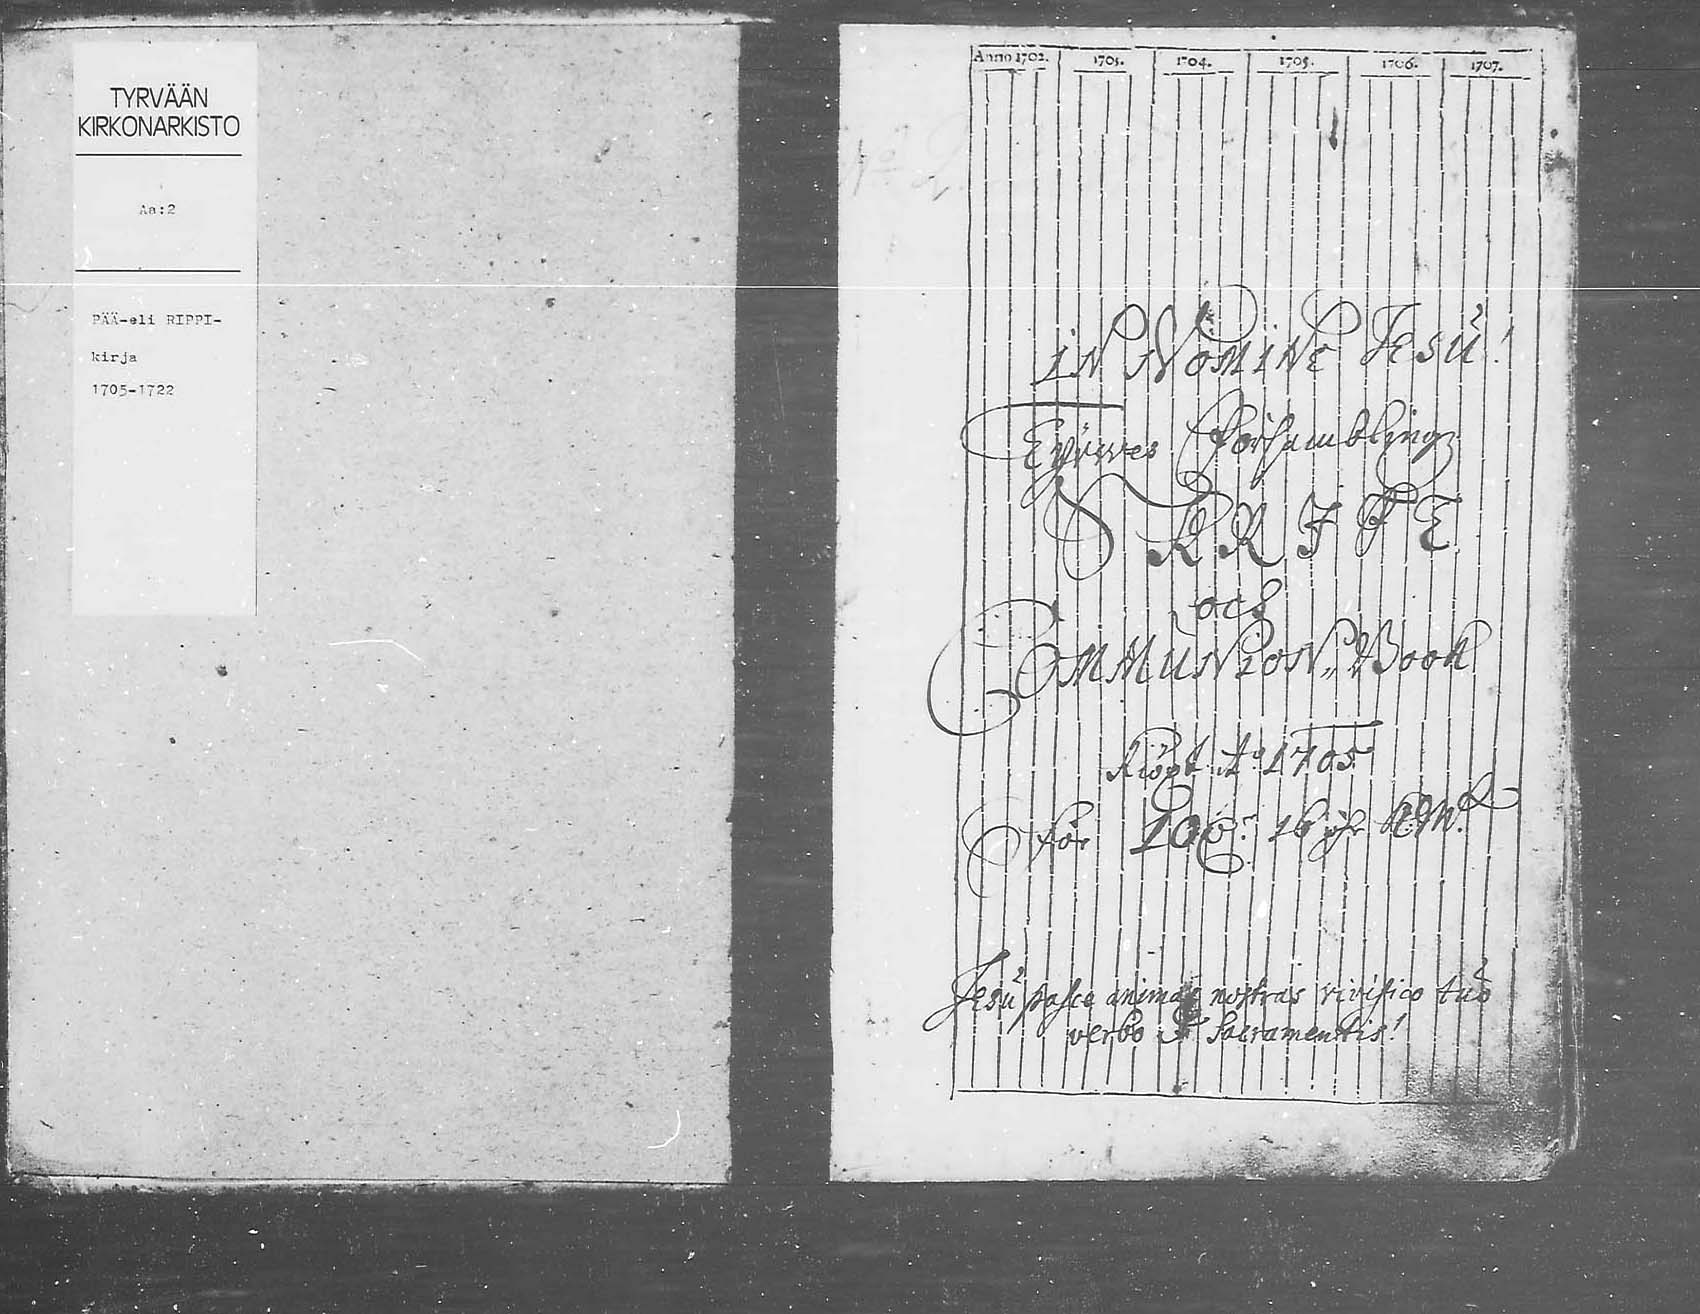 TYRVÄÄN
KIRKONARKISTO
Aa:2
PÄÄ-eli RIPPI-
kirja
1705-1722
Anno 1702. 1703. 1704. 1705. 1706. 1707.
No 2.
IN NOMINE JESU!
Försambling
SKRIFTE
och
COMMUNION,, Book
Kiöpt Ao 1705
för 16 öhr KMt
Jesu pasce animas nostras vivifico tuo
verbo & sacramentis!